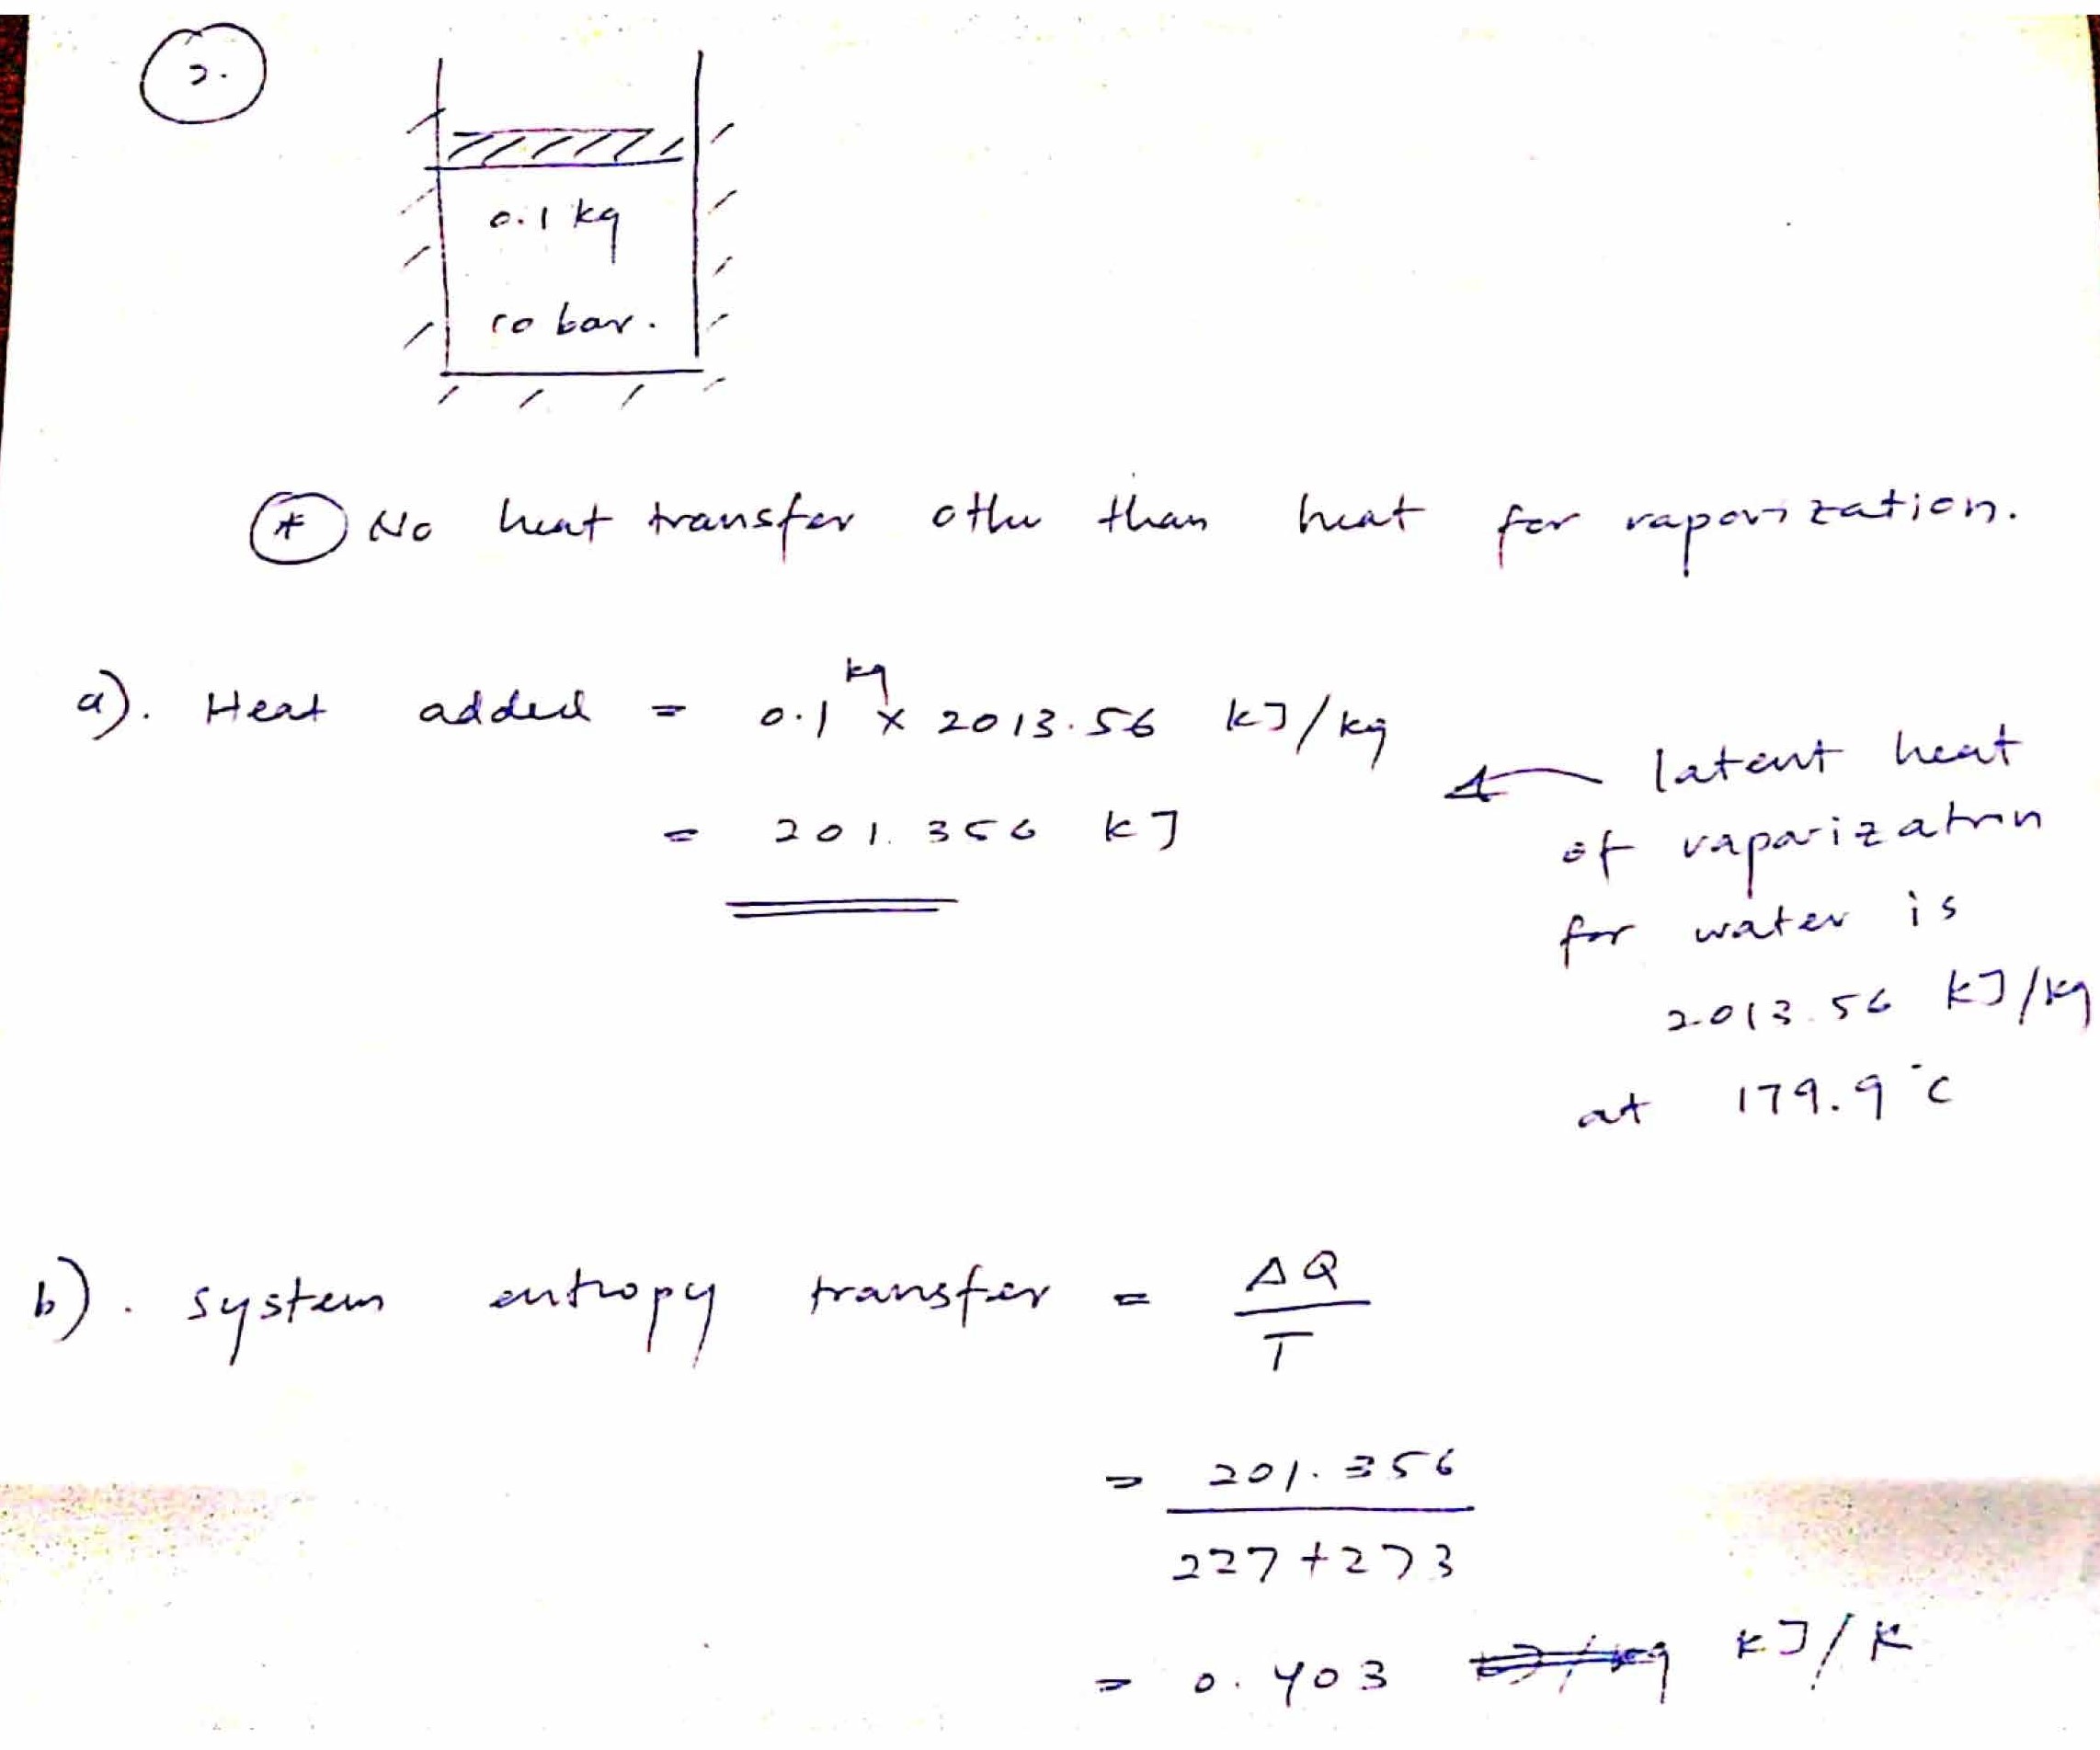 2.
0.1 kg
10 bar.
* No heat transfer other than heat for vaporization.
a). Heat added = 0.1 kg x 2013.56 kJ/kg
= 201.356 kJ
latent heat
of vaporization
for water is
2013.56 kJ/kg
at 179.9°C
b). system entropy transfer = ΔQ
T
= 201.356
227 + 273
= 0.403 kJ/K